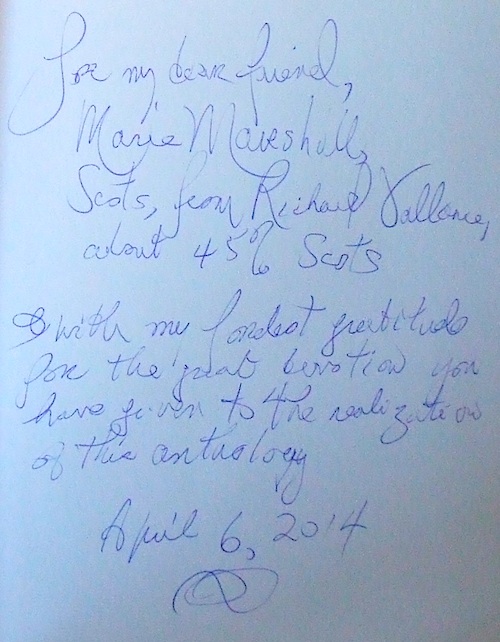 For my dear friend,
Marie Marshall,
Scots, from Richard Vallance,
about 45% Scots
& with my fondest gratitude
for the great devotion you
have given to the realization
of this anthology
April 6, 2014